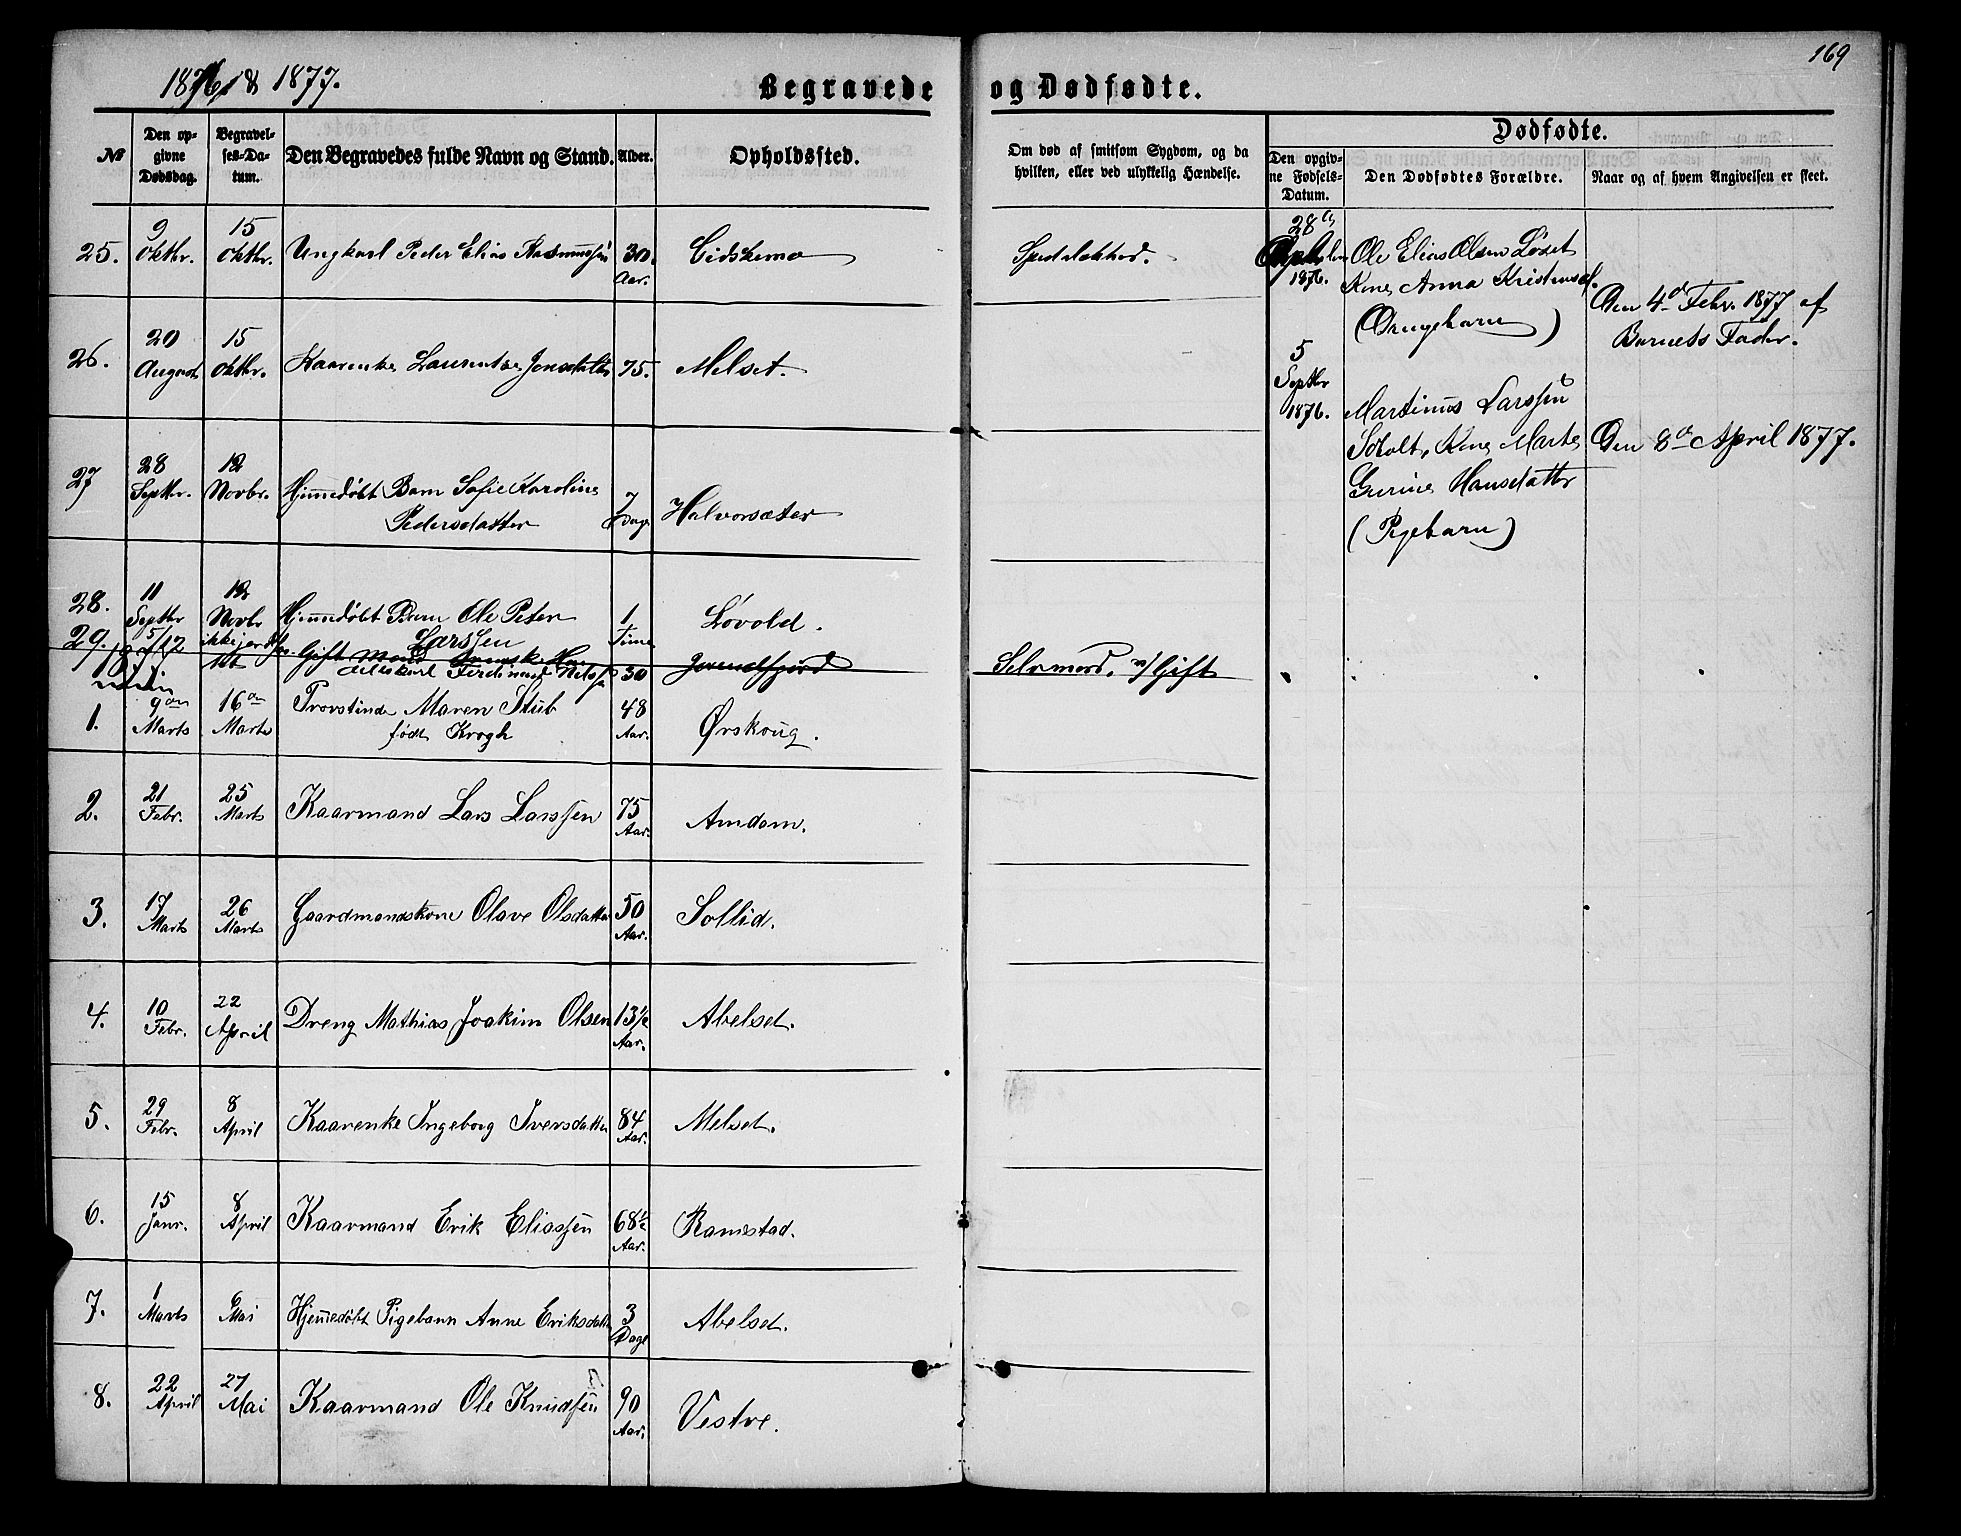 169
1876 & 1877.
Begravede og Dødfødte.
№
Den opgivne Dødsdag.
Begravelses-Datum.
Den Begravedes fulde Navn og Stand.
Alder.
Opholdssted.
Om død af smitsom Sygdom, og da hvilken, eller ved ulykkelig Hændelse.
Dødfødte.
Den opgivne Fødsels-Datum.
Den Dødfødtes Forældre.
Naar og af hvem Angivelsen er skeet.
25. 9 Oktbr. 15 Oktbr. Ungkarl Peder Elias Rasmussen 30 Aar. Eidskemo Spedalskhed.
26. 20 August 15 Oktbr. Kaarenke Laurentse Jonsdatter 75. Melset.
27 28 Septbr. 12 Novbr. Hjemmedøbt Barn Sofie Karoline
Pedersdatter 7 Dage Halvorsæter
28. 11 Septbr 12 Novbr Hjemmedøbt Barn Ole Peter
Larssen 1 Time Løvold.
29. 5/12 ikke Gift
Ferdinand 30 Selvmord. v/ Gift
1877
1. 9de Marts 16de Marts Provstinde Maren Stub
født Krogh 48 Aar. Ørskoug.
2. 21 Febr. 25 Marts Kaarmand Lars Larssen 75 Aar. Amdam.
3. 17 Marts 26 Marts Gaardmandskone Olave Olsdatter 50 Aar. Sollid.
4. 10 Febr. 22 April Dreng Mathias Joakim Olsen 13½ Aar. Abelset.
5. 29 Febr. 8 April Kaarenke Ingeborg Iversdatter 84 Aar. Melset.
6. 15 Janr. 8 April Kaarmand Erik Eliassen 68½ Aar. Ramstad.
7. 1 Marts 6 Mai Hjemmedøbt Pigebarn Anne Eriksdatter 3 Dage Abelset.
8. 22 April 27 Mai Kaarmand Ole Knudsen 90 Aar. Vestre.
28de
1876.
Ole Elias Olsen Løset
Kone Anna Kristensd.
(Drengebarn)
Den 4de Febr. 1877 af
Barnets Fader.
5 Septbr 1876.
Martinus Larssen
Soholt, Kone Marte
Gurine Hansdatter
(Pigebarn)
Den 8de April 1877.